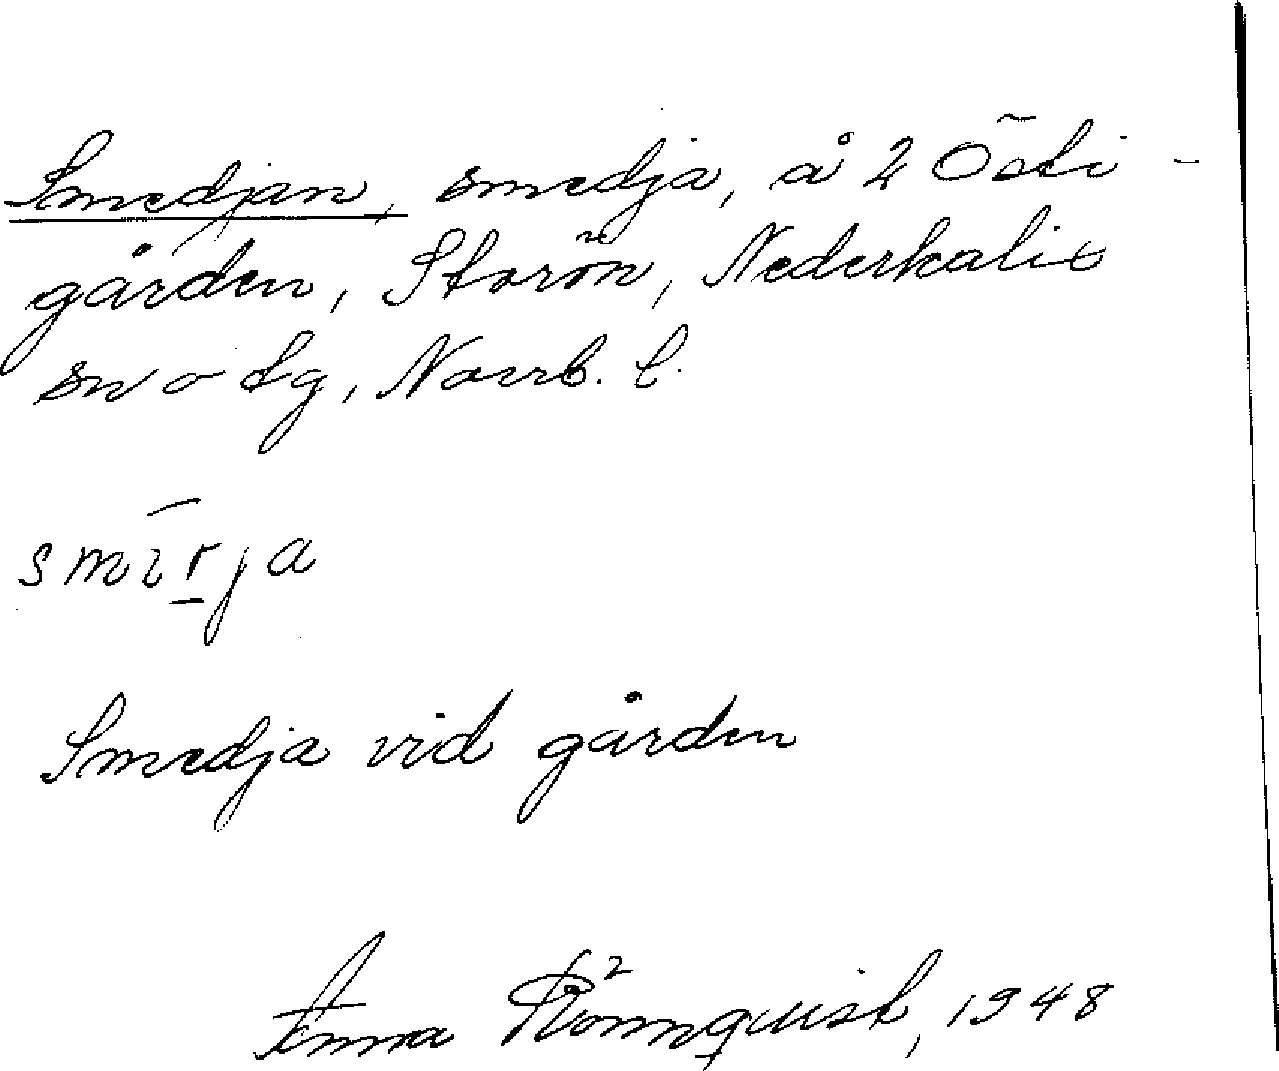 Smedjan, smedja, å 2 Östi-
gården, Storön, Nederkalix
sn o tg, Norrb. l.
smirja
Smedja vid gården
Anna Rönnqvist, 1948